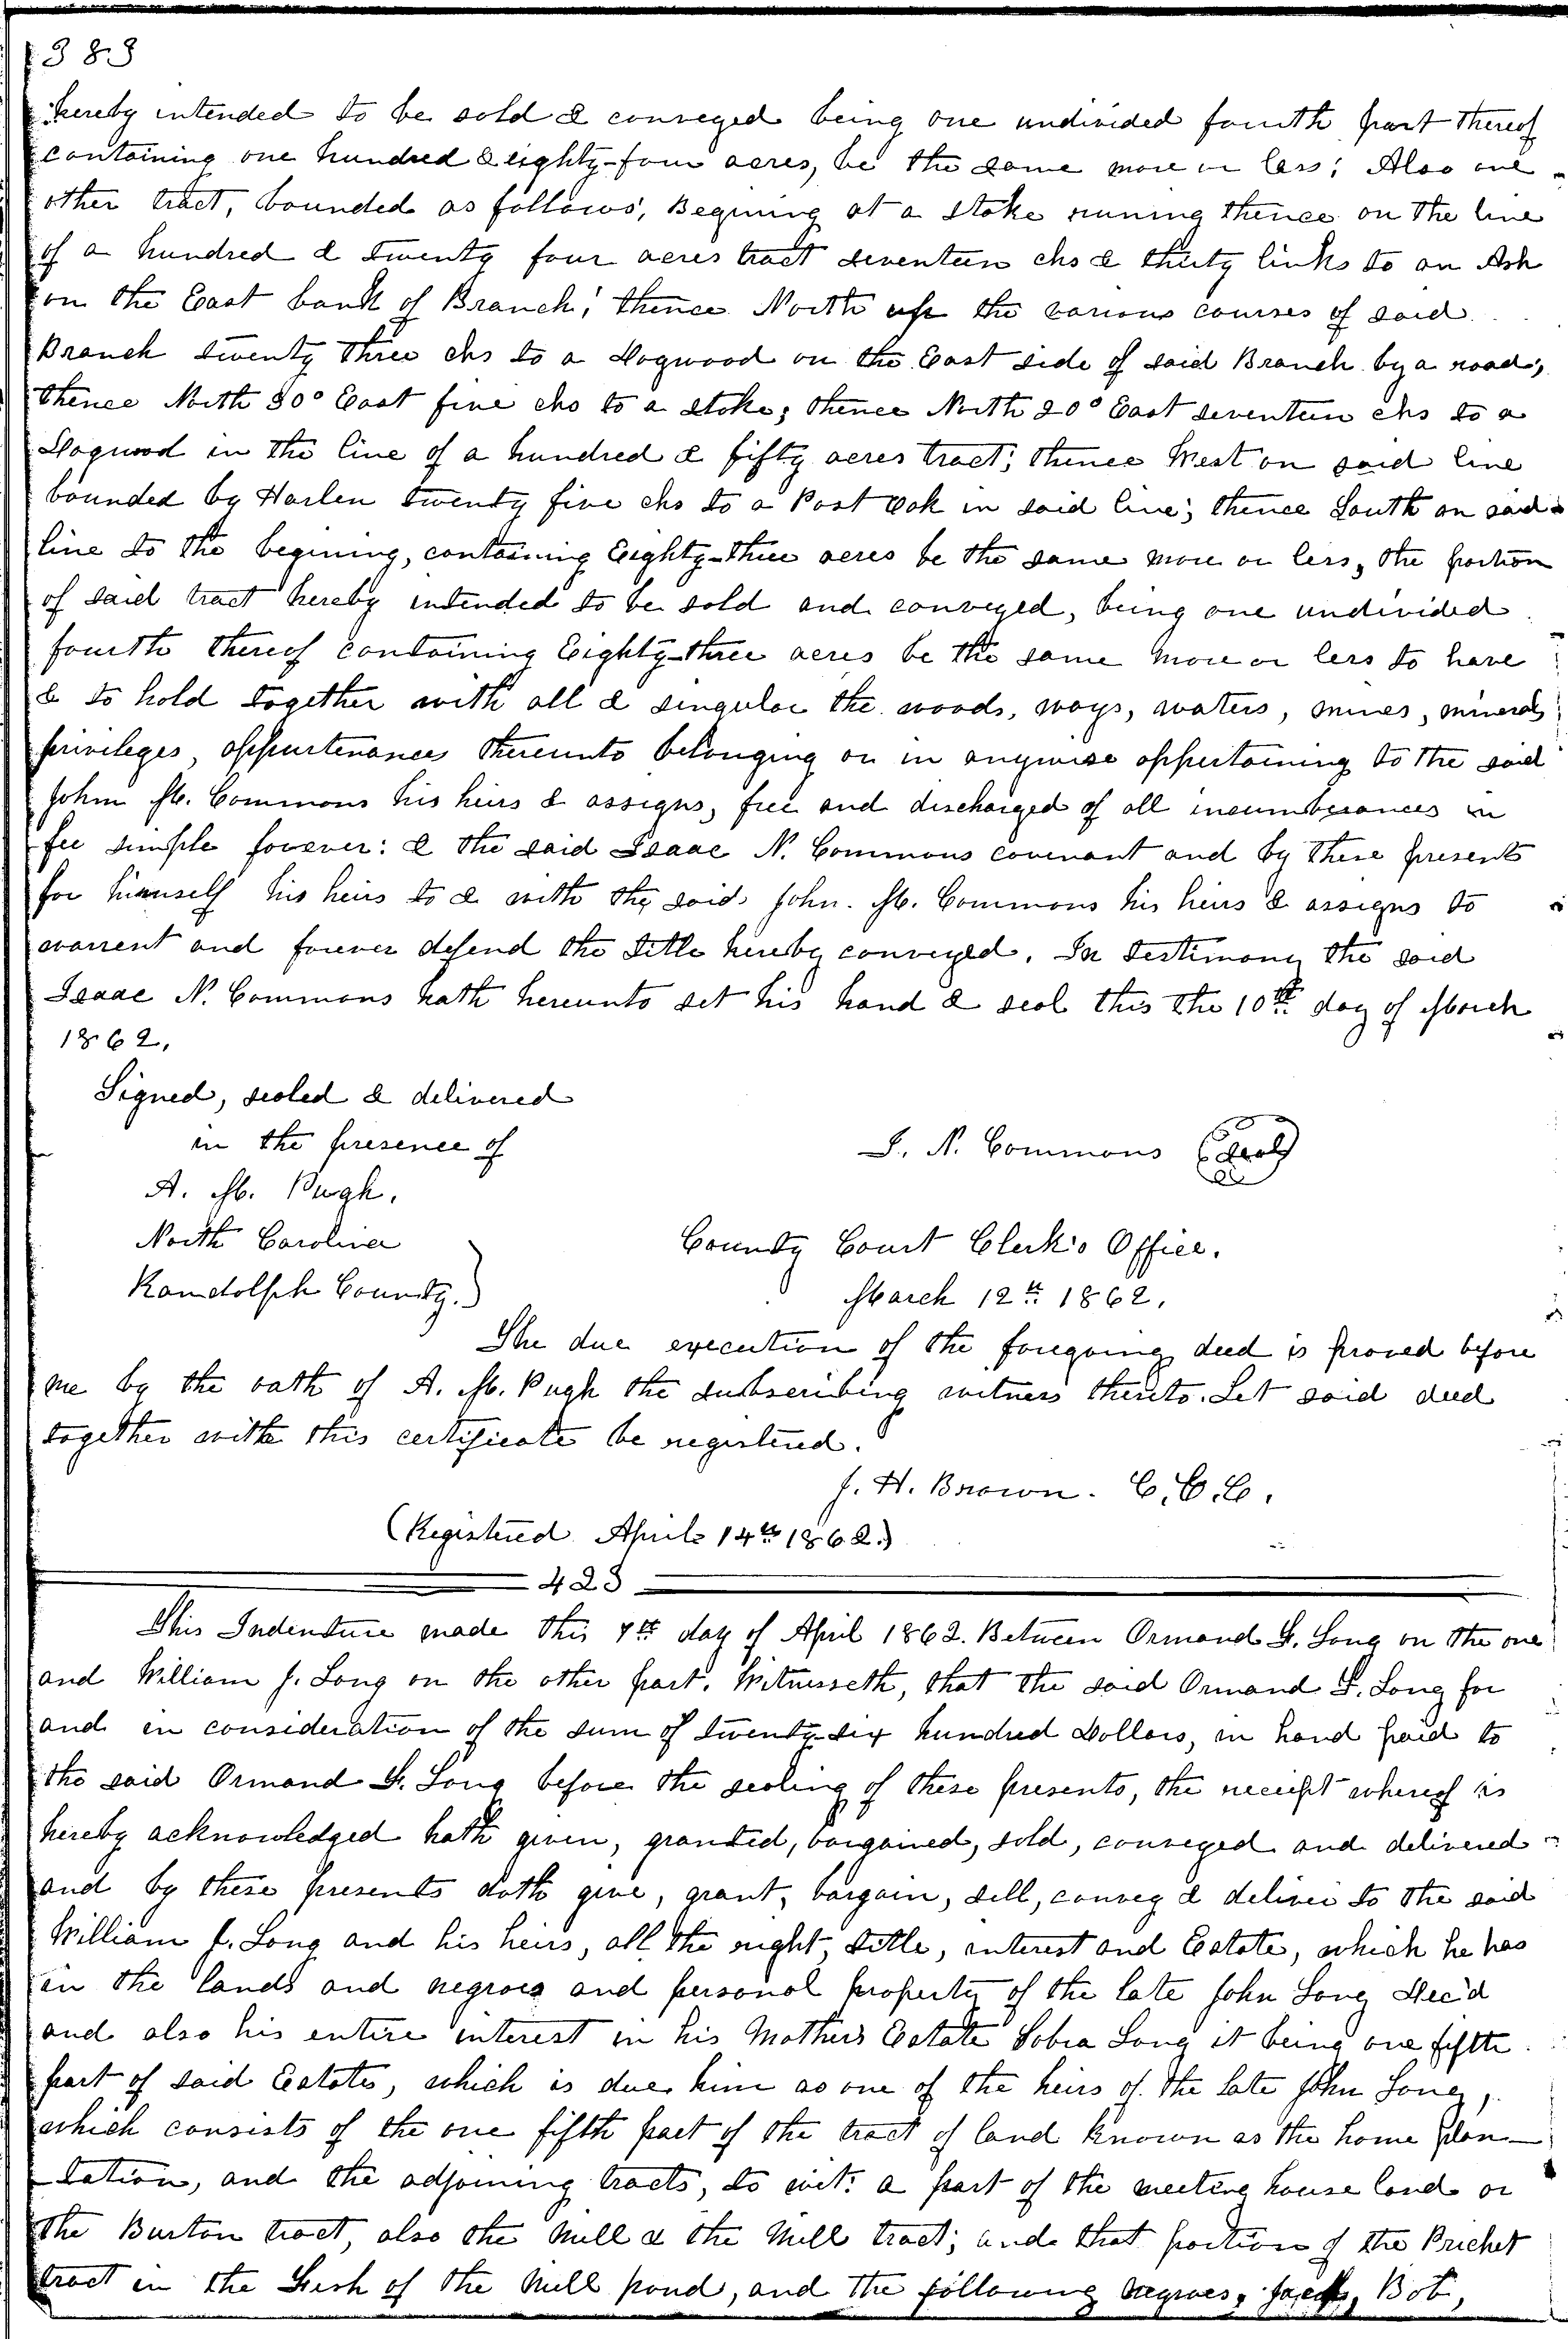 383
hereby intended to be sold & conveyed being one undivided fourth part thereof
containing one hundred & eighty-four acres, be the same more or less; Also one
other tract, bounded as follows, Begining at a Stake runing thence on the line
of a hundred & twenty four acres tract seventeen chs & thirty links to an Ash
on the East bank of Branch; thence North up the various courses of said
Branch twenty three chs to a Dogwood on the East side of said Branch by a road;
thence North 80° East five chs to a stake; thence North 20° East seventeen chs to a
Dogwood in the line of a hundred & fifty acres tract; thence West on said line
bounded by Harlen twenty five chs to a Post Oak in said line; thence South on said
line to the begining, containing Eighty-three acres be the same more or less, the portion
of said tract hereby intended to be sold and conveyed, being one undivided
fourth thereof containing Eighty-three acres be the same more or less to have
& to hold together with all & singular the woods, ways, waters, mines, minerals
privileges, appurtenances thereunto belonging or in anywise appertaining to the said
John M. Commons his heirs & assigns, free and discharged of all incumberances in
fee simple forever: & the said Isaac N. Commons covenant and by these presents
for himself his heirs to & with the said John. M. Commons his heirs & assigns to
warrent and forever defend the title hereby conveyed. In testimony the said
Isaac N. Commons hath hereunto set his hand & seal this the 10th day of March
1862,
Signed, sealed & delivered
in the presence of
I. N. Commons (Seal)
A. M. Pugh.
North Carolina
County Court Clerk's Office.
Randolph County.)
March 12th 1862.
The due execution of the foregoing deed is proved before
me by the oath of A. M. Pugh the subscribing witness thereto. Let said deed
together with this certificate be registered.
J. H. Brown. C.C.C.
(Registered April 14th 1862.)
423
This Indenture made this 7th day of April 1862. Between Ormand G. Long on the one
and William J. Long on the other part. Witnesseth, that the said Ormand G. Long for
and in consideration of the sum of twenty-six hundred Dollars, in hand paid to
the said Ormand G. Long before the sealing of these presents, the receipt whereof is
hereby acknowledged hath given, granted, bargained, sold, conveyed and delivered
and by these presents doth give, grant, bargain, sell, convey & deliver to the said
William J. Long and his heirs, all the right, title, interest and Estate, which he has
in the lands and negroes and personal property of the late John Long Dec'd
and also his entire interest in his Mothers Estate Sobra Long it being one fifth
part of said Estates, which is due him as one of the heirs of the late John Long,
which consists of the one fifth part of the tract of land known as the home plan-
tation, and the adjoining tracts, to wit: a part of the meeting house land or
the Burton tract, also the Mill & the Mill tract; and that portion of the Prichet
tract in the of the Mill pond, and the following negroes, Jack, Bob,